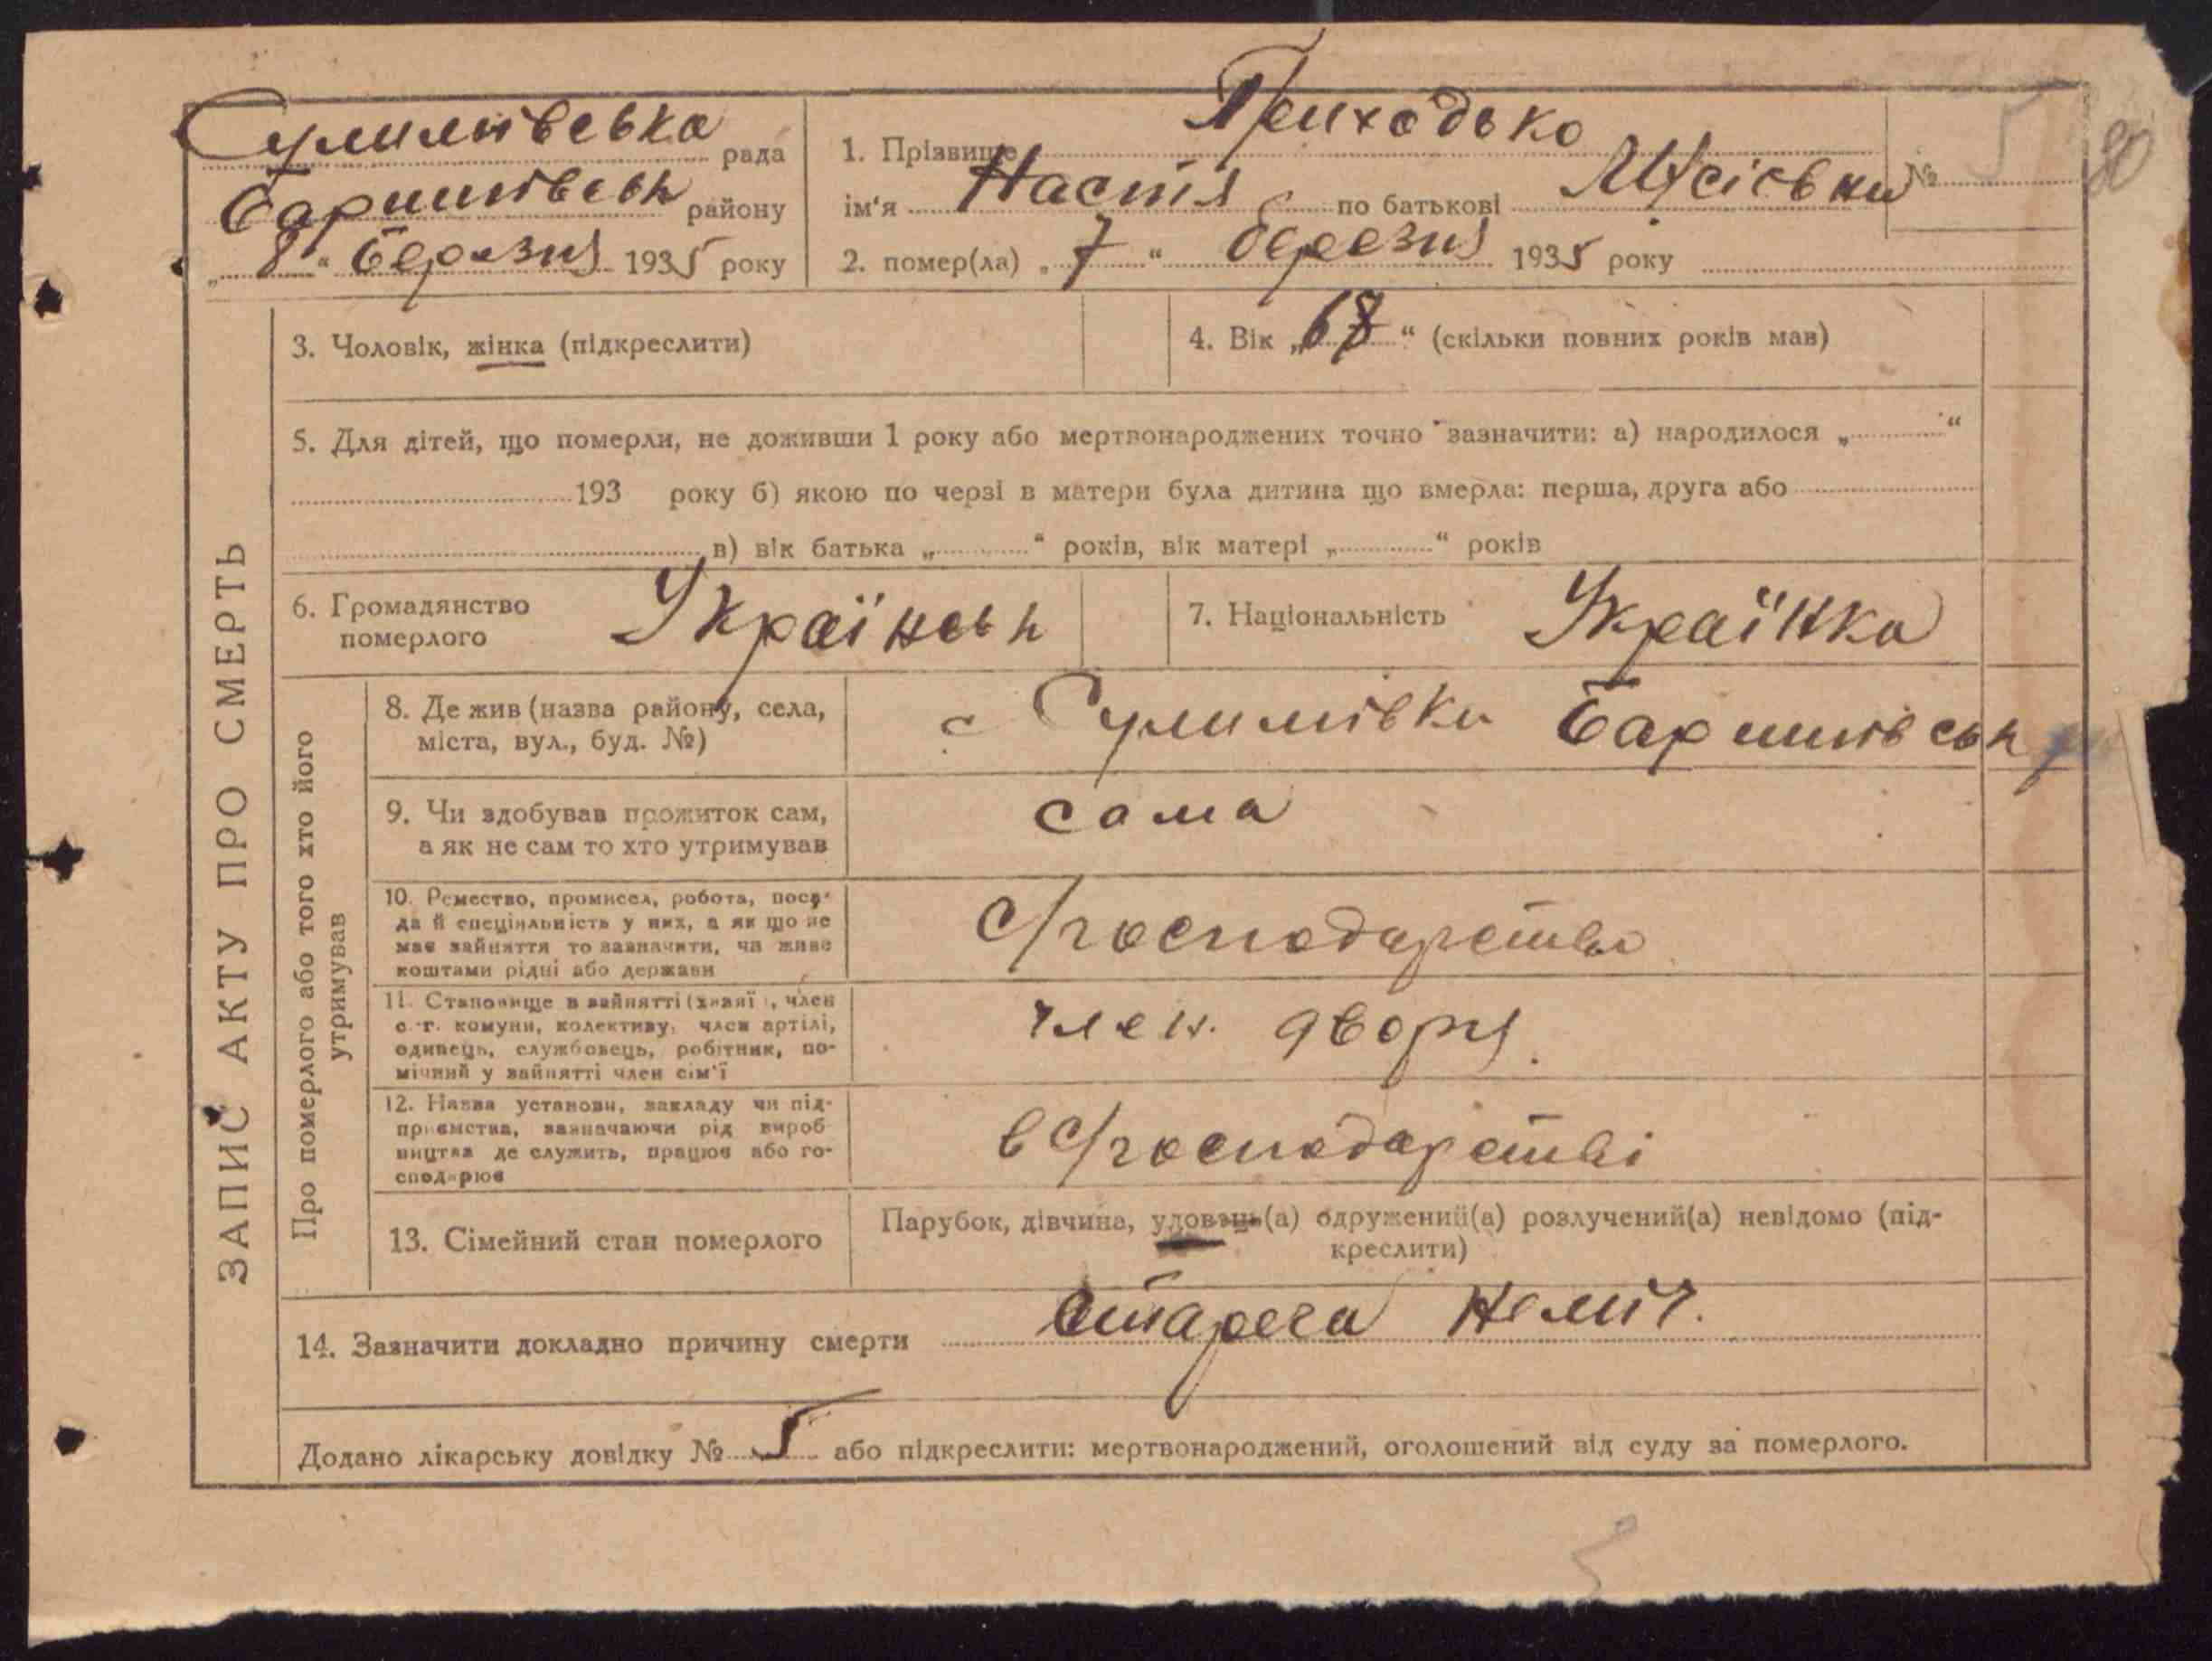 Сулимівська рада
Баришівськ району
„8“ березня 1935 року
1. Прізвище Приходько
ім'я Настя по батькові Мусіївни № 5
80
2. помер(ла) „7“ березня 1935 року
ЗАПИС АКТУ ПРО СМЕРТЬ
3. Чоловік, жінка (підкреслити)
4. Вік „68“ (скільки повних років мав)
5. Для дітей, що померли, не доживши 1 року або мертвонароджених точно зазначити: а) народилося „ “
193 року б) якою по черзі в матери була дитина що вмерла: перша, друга або
в) вік батька „ “ років, вік матері „ “ років
6. Громадянство
померлого
Українськ
7. Національність Українка
Про померлого або того хто його
утримував
8. Де жив (назва району, села,
міста, вул., буд. №)
с Сулимівки Баришівськ
9. Чи здобував прожиток сам,
а як не сам то хто утримував
сама
10. Ремество, промисел, робота, поса-
да й спеціяльність у них, а як що не
має зайняття то зазначити, чи живе
коштами рідні або держави
с/господарство
11. Становище в зайнятті (хазяї, член
с.-г. комуни, колективу, член артілі,
одинець, службовець, робітник, по-
мічний у зайнятті член сім'ї
член. двора.
12. Назва установи, закладу чи під-
приємства, зазначаючи рід вироб-
ництва де служить, працює або го-
сподарює
в с/господарстві
13. Сімейний стан померлого
Парубок, дівчина, удовець(а) одружений(а) розлучений(а) невідомо (під-
креслити)
14. Зазначити докладно причину смерти Стареча неміч.
Додано лікарську довідку № 5 або підкреслити: мертвонароджений, оголошений від суду за померлого.